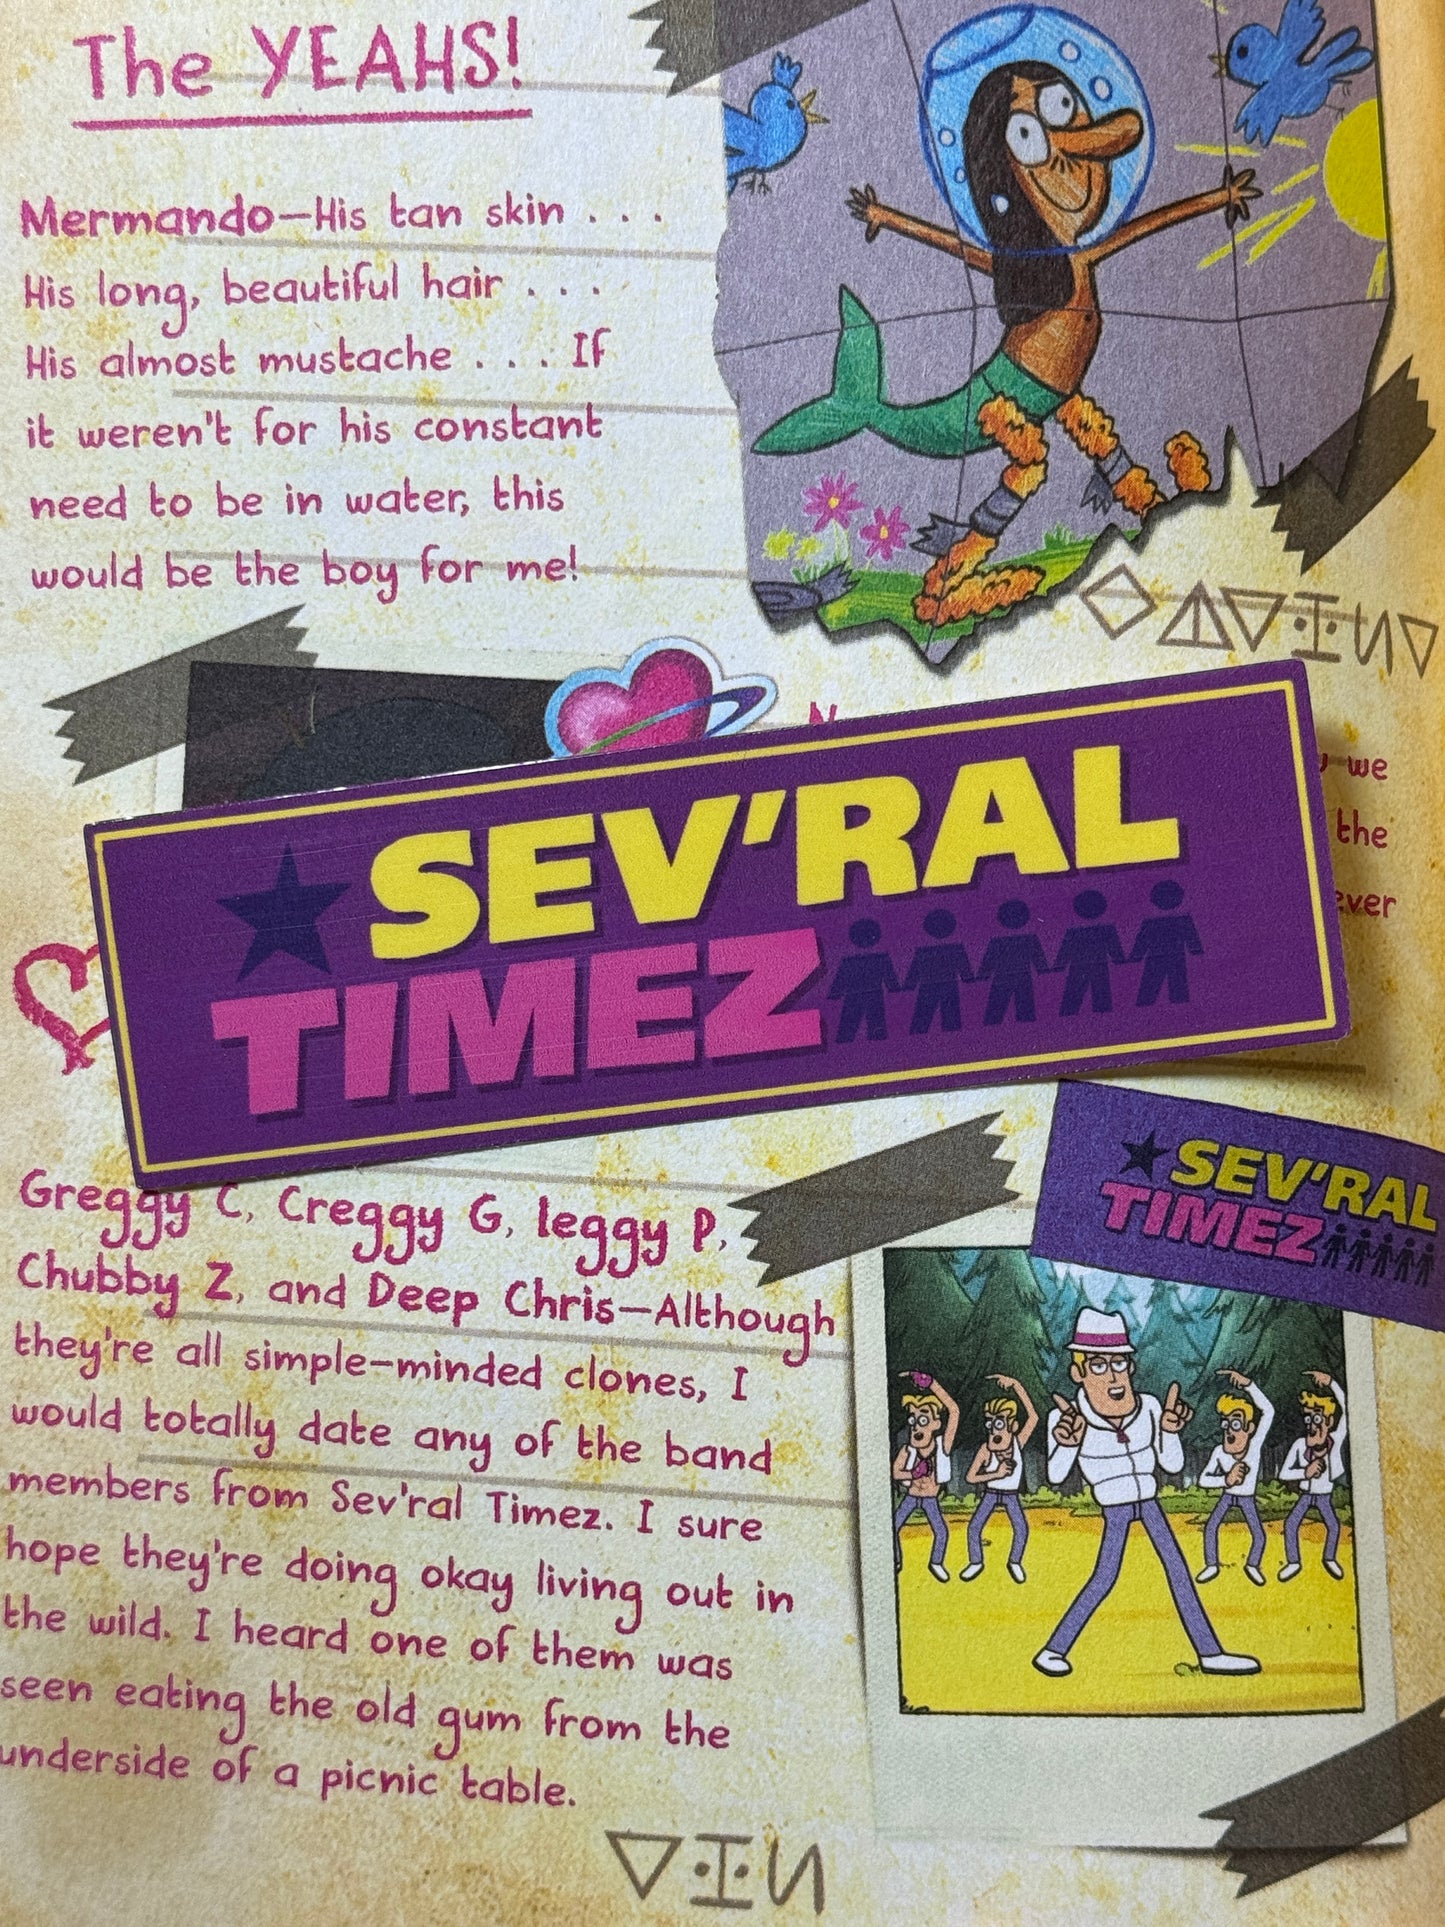 The YEAHS!
Mermando—His tan skin . . .
His long, beautiful hair . . .
His almost mustache . . . If
it weren't for his constant
need to be in water, this
would be the boy for me!
we
the
SEV'RAL
TIMEZ
SEV'RAL
TIMEZ
Greggy C, Creggy G, leggy P,
Chubby Z, and Deep Chris—Although
they're all simple-minded clones, I
would totally date any of the band
members from Sev'ral Timez. I sure
hope they're doing okay living out in
the wild. I heard one of them was
seen eating the old gum from the
underside of a picnic table.